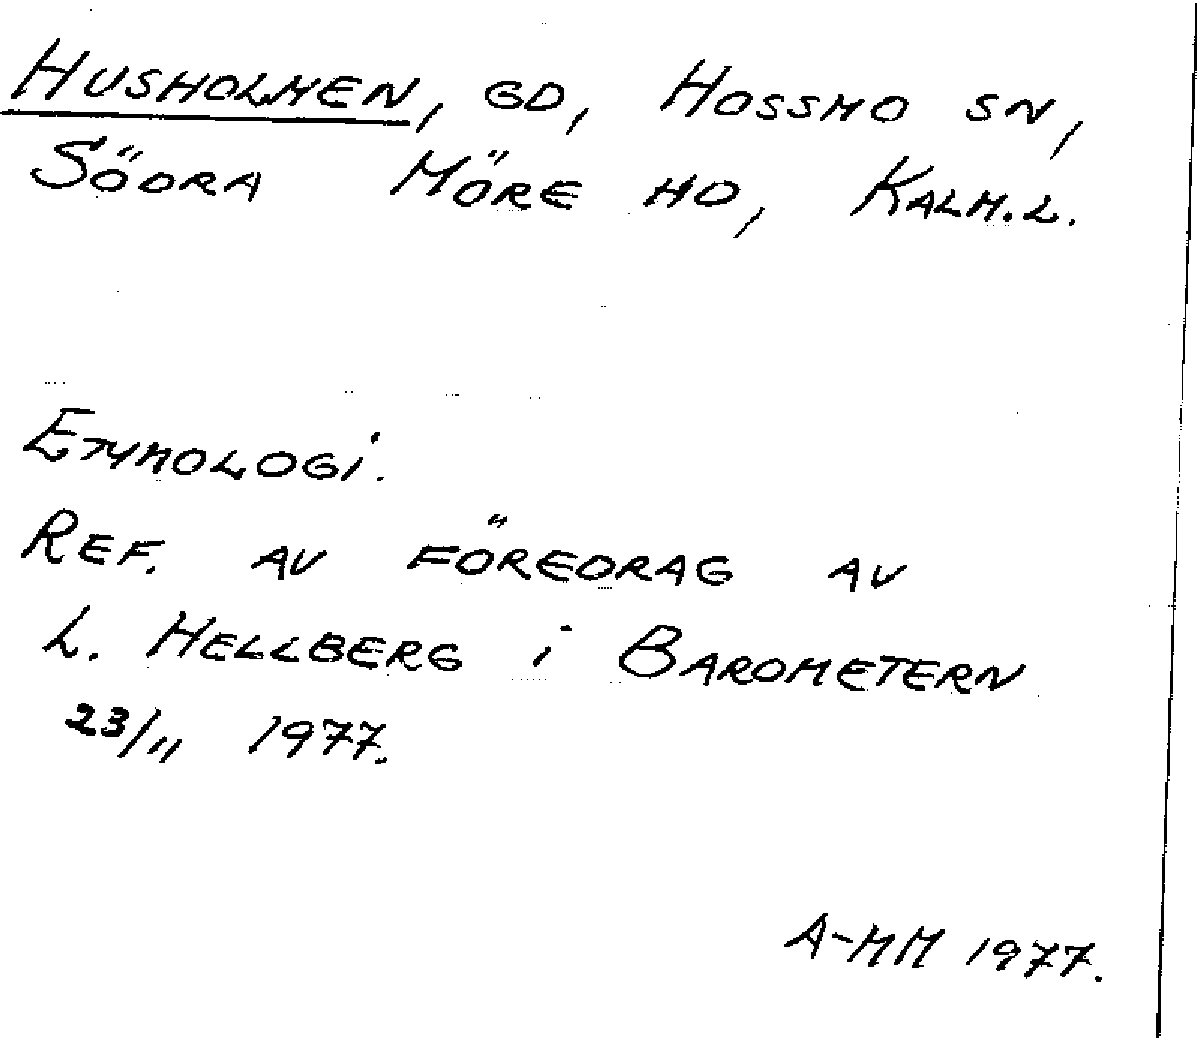 HUSHOLMEN, GD, HOSSMO SN,
SÖDRA MÖRE HD, KALM.L.
ETYMOLOGI.
REF. AV FÖREDRAG AV
L. HELLBERG i BAROMETERN
23/11 1977.
A-MM 1977.